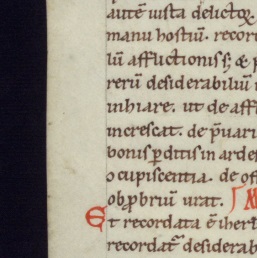 autē iuxta delictoꝝ
manu hostiū. recor
lū afflictionis s; & p
rerū desiderabiliū
inhiare. ut de aff
increscat. de p̄uari
bonis p̄ditis in arde
ocupiscentia. de of
obp̄briū urat. M
Et recordata ē iher
recordat̄ desiderab